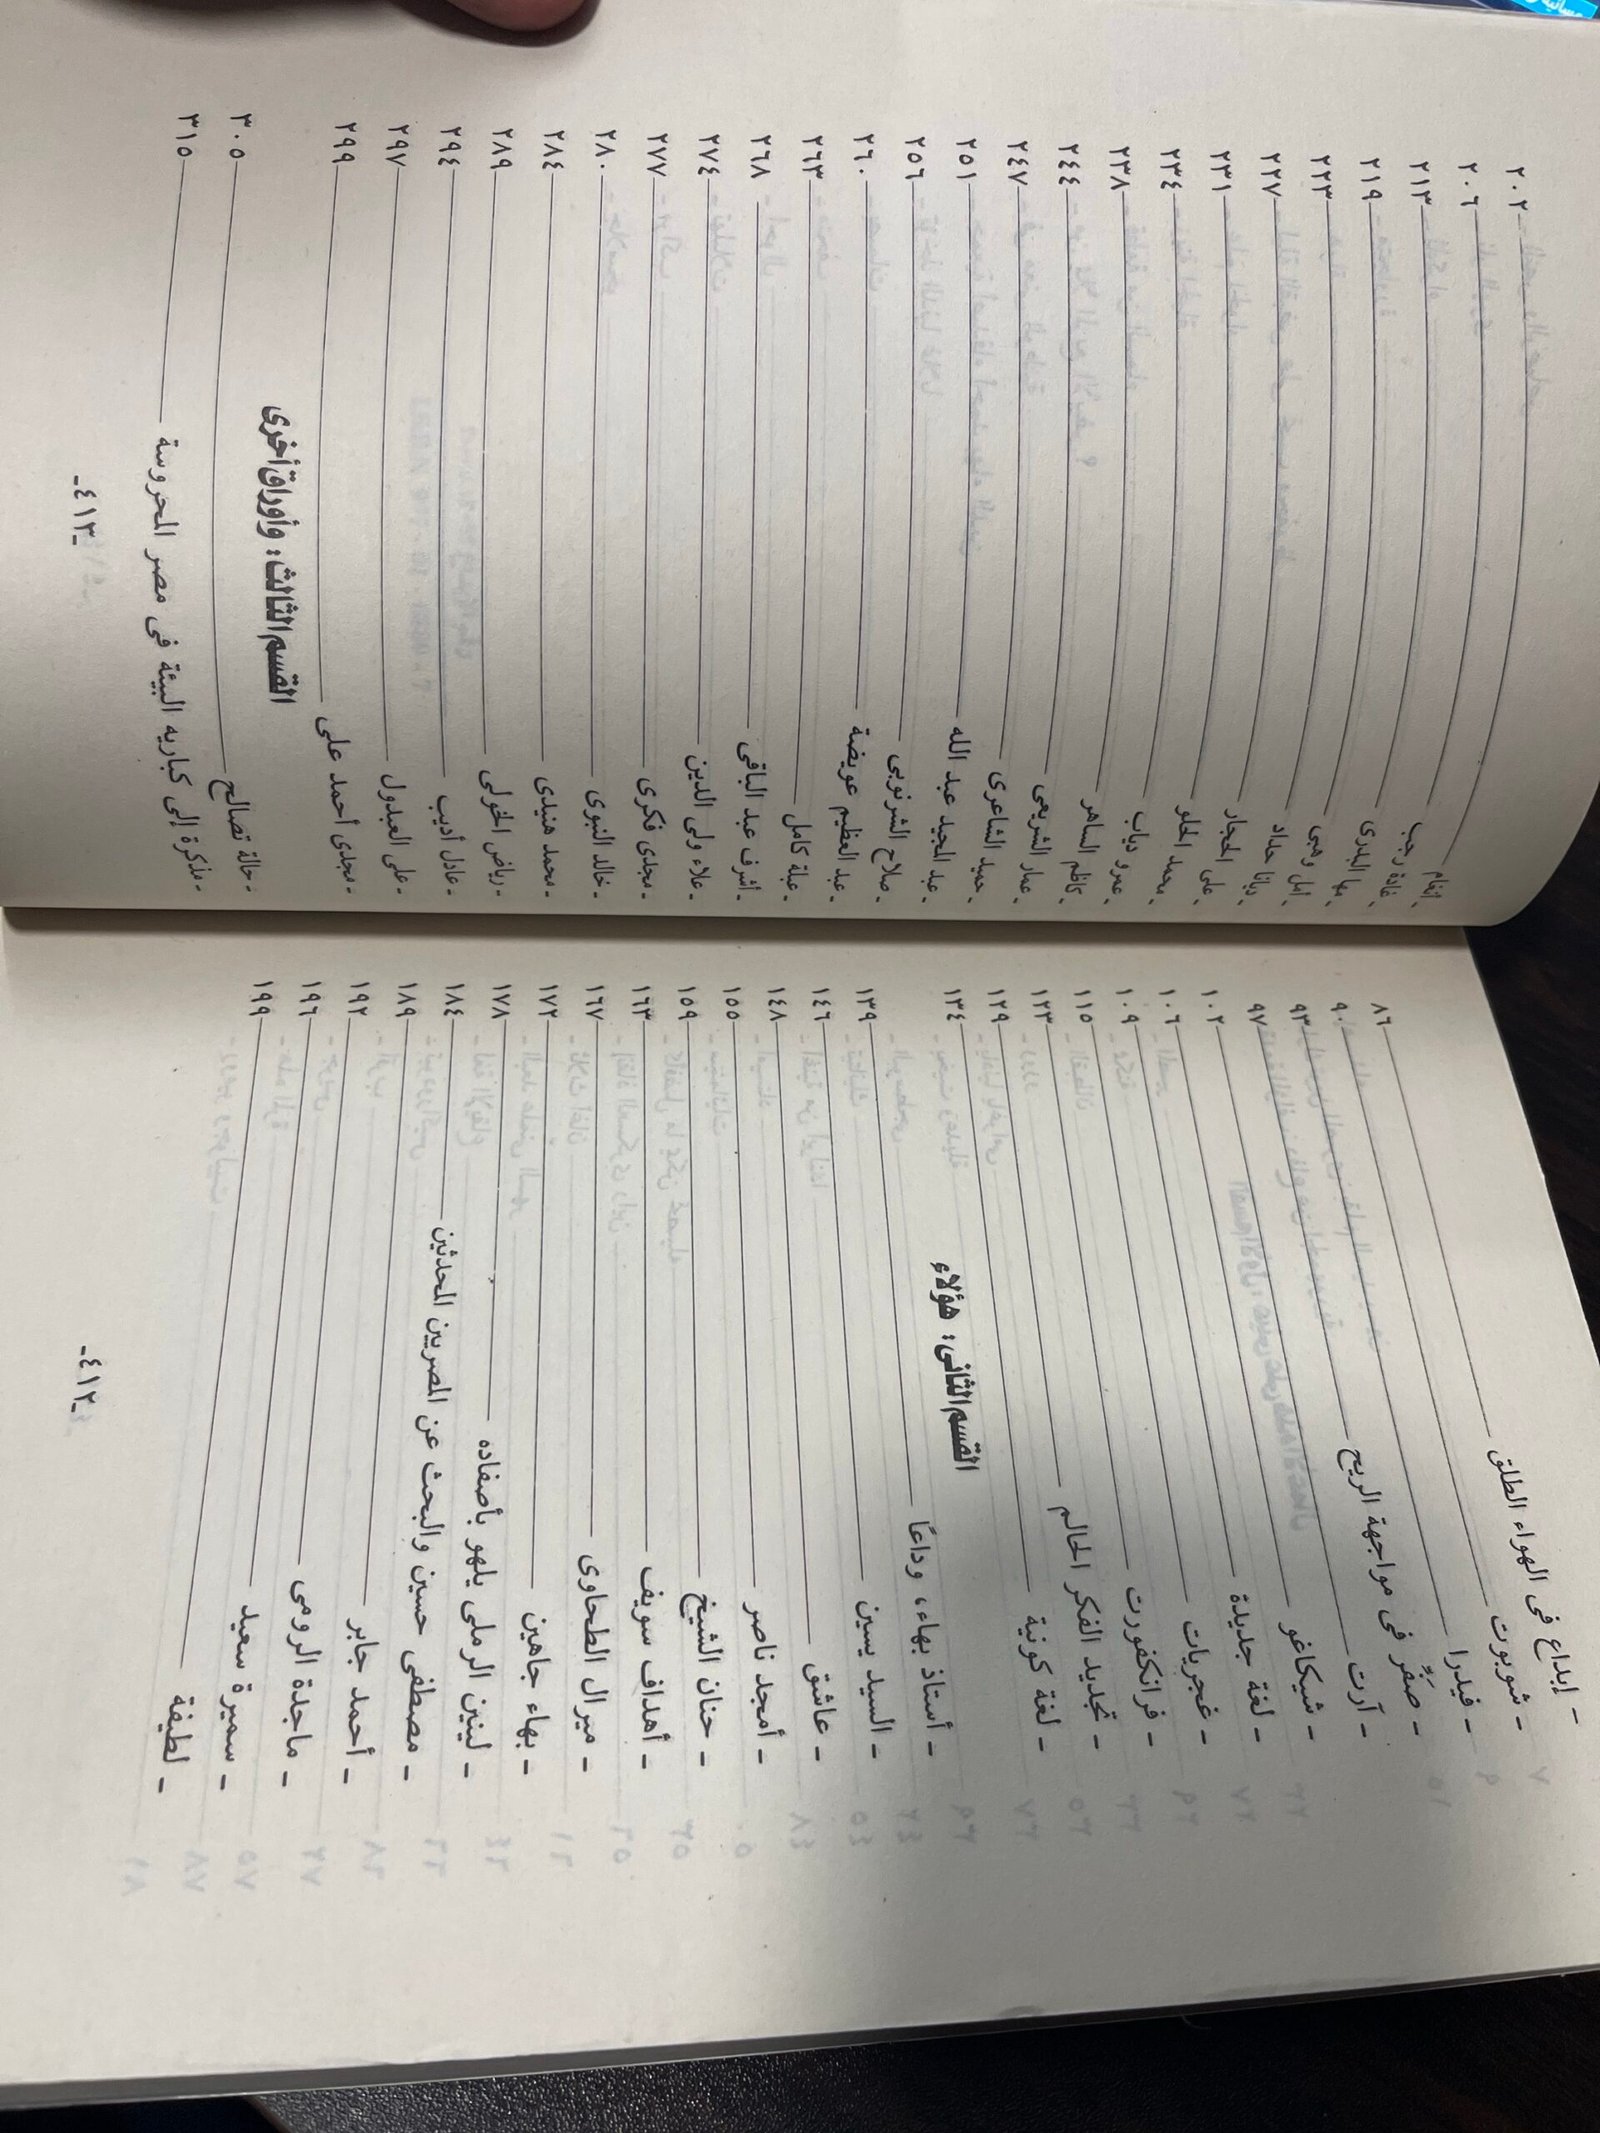 - إبداع فى الهواء الطلق ٨٦
- شوبوت ٩٠
- فيدرا ٩٣
- صِفْر فى مواجهة الريح ٩٧
- آرت ١٠٢
- شيكاغو ١٠٦
- لغة جديدة ١٠٩
- غجريات ١١٥
- فرانكفورت ١٢٣
- تجديد الفكر الحالم ١٢٩
- لغة كونية ١٣٤
القسم الثانى: هؤلاء
- أستاذ بهاء، وداعًا ١٣٩
- السيد يسين ١٤٦
- عاشق ١٤٨
- أمجد ناصر ١٥٥
- حنان الشيخ ١٥٩
- أهداف سويف ١٦٣
- ميرال الطحاوى ١٦٧
- بهاء جاهين ١٧٢
- لينين الرملى يلهو بأصفاده ١٧٨
- مصطفى حسين والبحث عن المصريين المحدثين ١٨٤
- أحمد جابر ١٨٩
- ماجدة الرومى ١٩٢
- سميرة سعيد ١٩٦
- لطيفة ١٩٩
-٤١٢-
- أنغام ٢٠٢
- غادة رجب ٢٠٦
- مها البدرى ٢١٣
- أمل وهبى ٢١٩
- ديانا حداد ٢٢٣
- على الحجار ٢٢٧
- محمد الحلو ٢٣١
- عمرو دياب ٢٣٤
- كاظم الساهر ٢٣٨
- عمار الشريعى ٢٤٤
- حميد الشاعرى ٢٤٧
- عبد المجيد عبد الله ٢٥١
- صلاح الشرنوبى ٢٥٦
- عبد العظيم عويضة ٢٦٠
- عبلة كامل ٢٦٣
- أشرف عبد الباقى ٢٦٨
- علاء ولى الدين ٢٧٤
- مجدى فكرى ٢٧٧
- خالد النبوى ٢٨٠
- محمد هنيدى ٢٨٤
- رياض الخولى ٢٨٩
- عادل أديب ٢٩٤
- على العبدول ٢٩٧
- مجدى أحمد على ٢٩٩
القسم الثالث: وأوراق أخرى
- حالة تصالح ٣٠٥
- مذكرة إلى كباريه البيئة فى مصر المحروسة ٣١٥
-٤١٣-